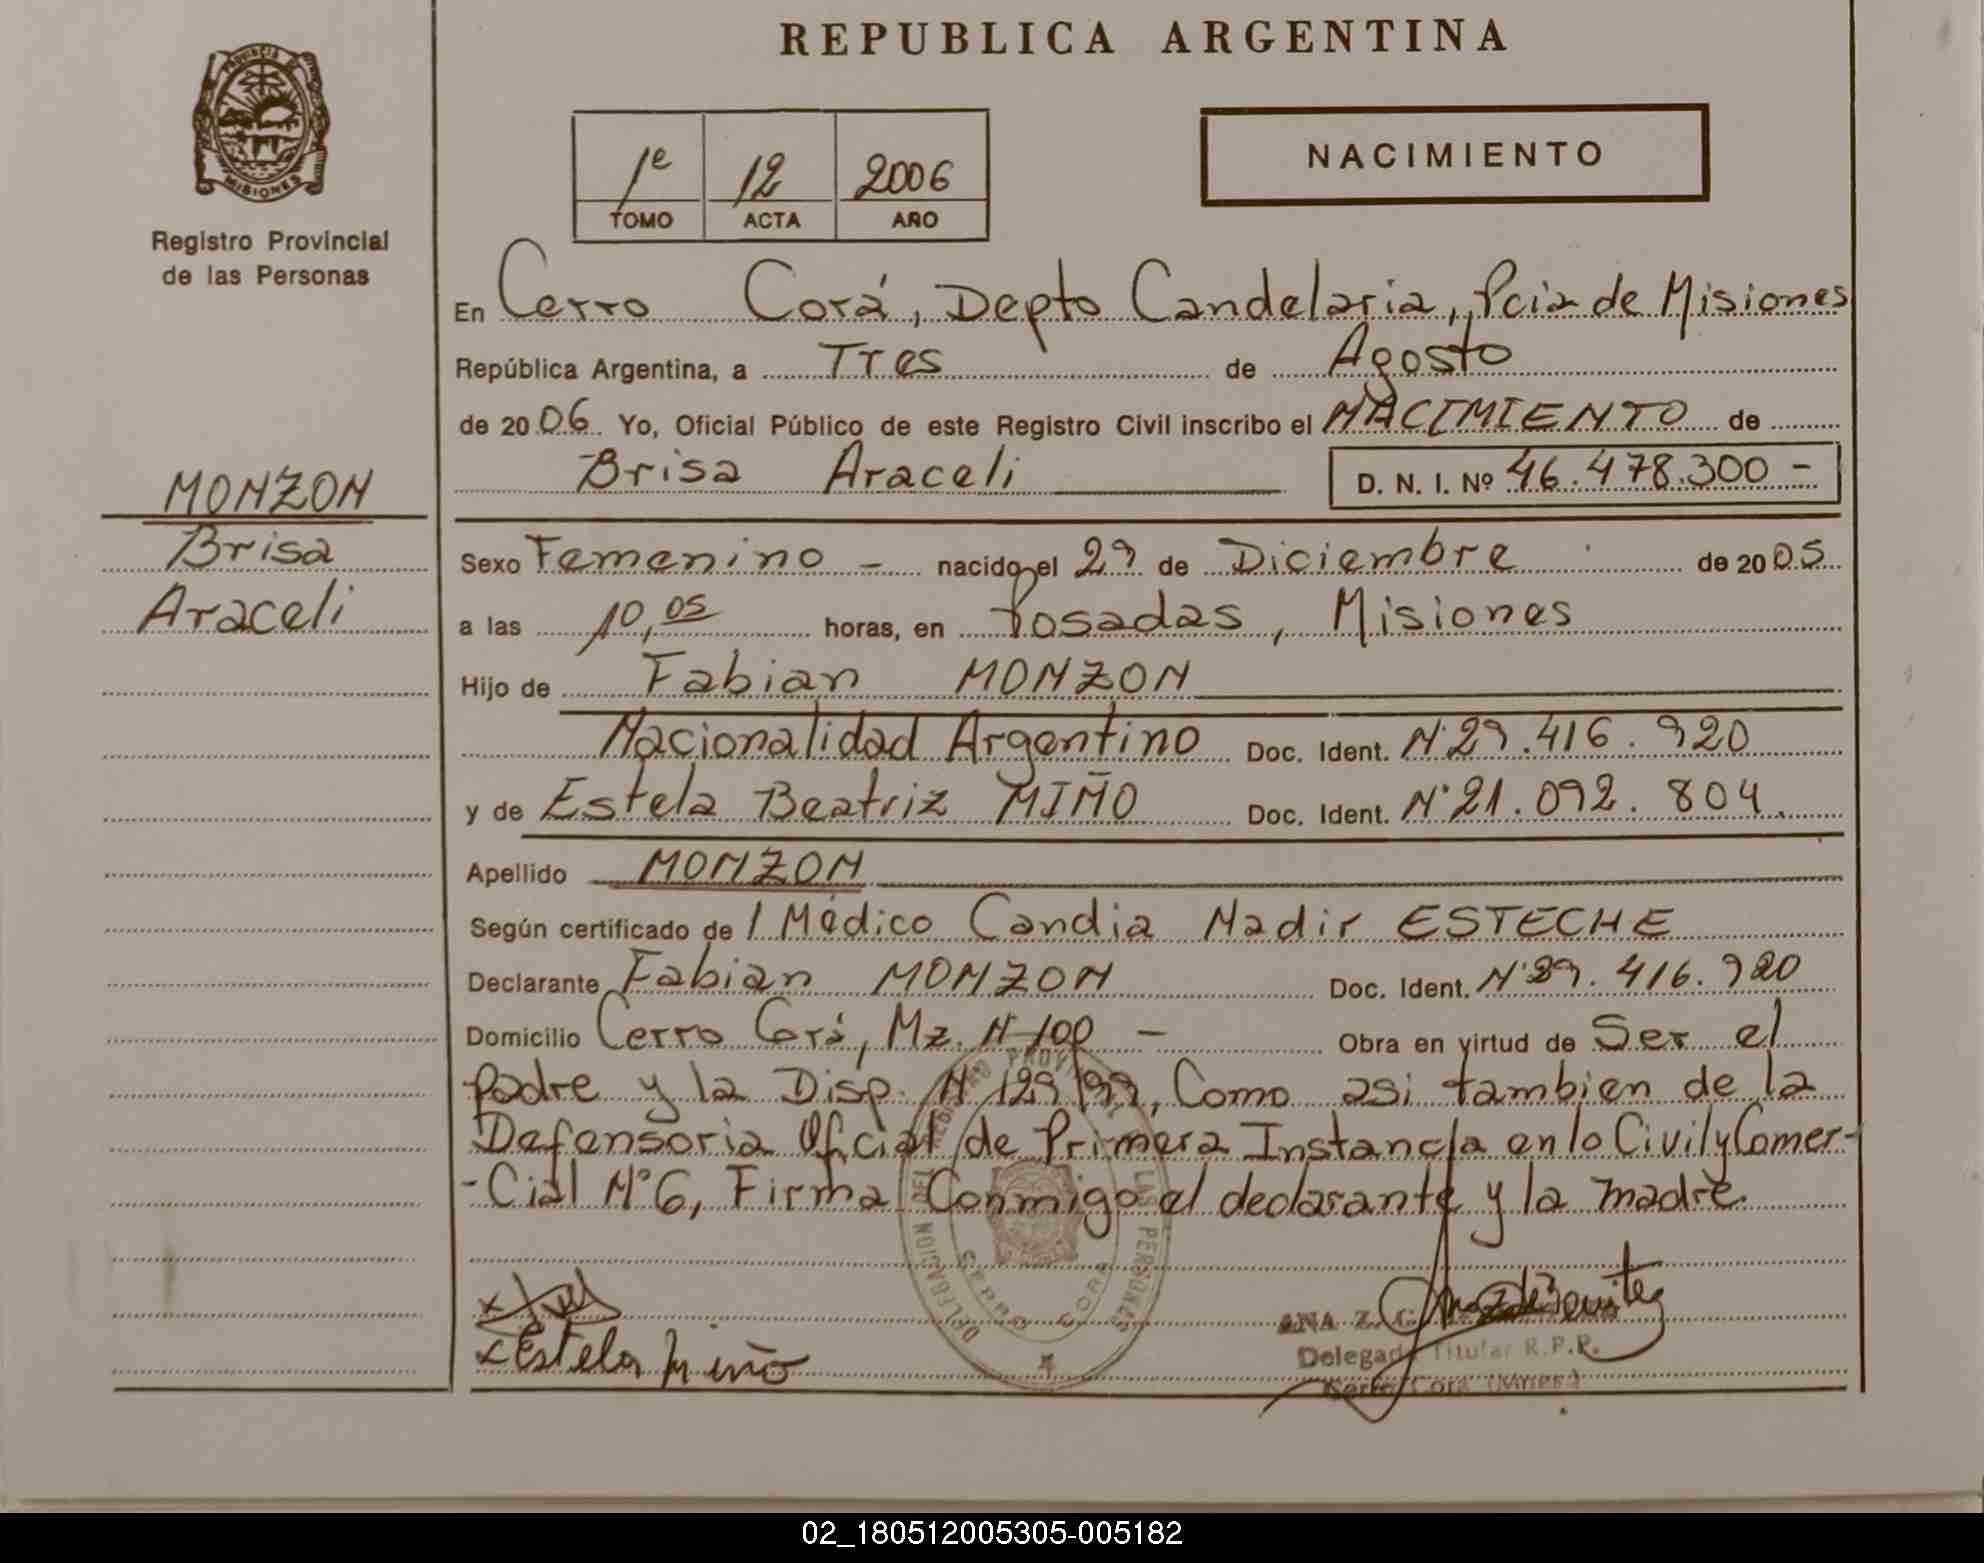 REPUBLICA ARGENTINA
PROVINCIA DE MISIONES
Registro Provincial
de las Personas
1º 12 2006
TOMO ACTA AÑO
NACIMIENTO
MONZON
Brisa
Araceli
En Cerro Corá, Depto Candelaria, Pcia de Misiones
República Argentina, a Tres de Agosto
de 2006 Yo, Oficial Público de este Registro Civil inscribo el NACIMIENTO de
Brisa Araceli D. N. I. Nº 46.478.300-
Sexo Femenino - nacido el 29 de Diciembre de 2005
a las 10,05 horas, en Posadas, Misiones
Hijo de Fabian MONZON
Nacionalidad Argentino Doc. Ident. Nº 29.416.920
y de Estela Beatriz MIÑO Doc. Ident. Nº 21.092.804.
Apellido MONZON
Según certificado de / Médico Candia Nadir ESTECHE
Declarante Fabian MONZON Doc. Ident. Nº 29.416.920
Domicilio Cerro Corá, Mz. Nº 100 - Obra en virtud de Ser el
padre y la Disp. Nº 129/99, Como asi tambien de la
Defensoria Oficial de Primera Instancia en lo Civil y Comer-
-Cial Nº 6, Firma Conmigo el declarante y la madre.
DELEGACION DEL REGISTRO PROVINCIAL DE LAS PERSONAS
CERRO CORA
x Estela Miño
ANA Z.
Delegada Titular R.P.P.
Cerro Cora (Mnes)
02_180512005305-005182